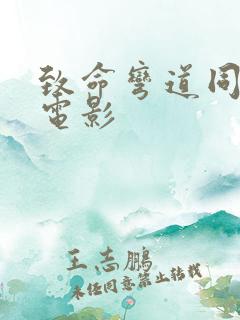 致命彎道同
電影
王志鵬
未经同意禁止转载